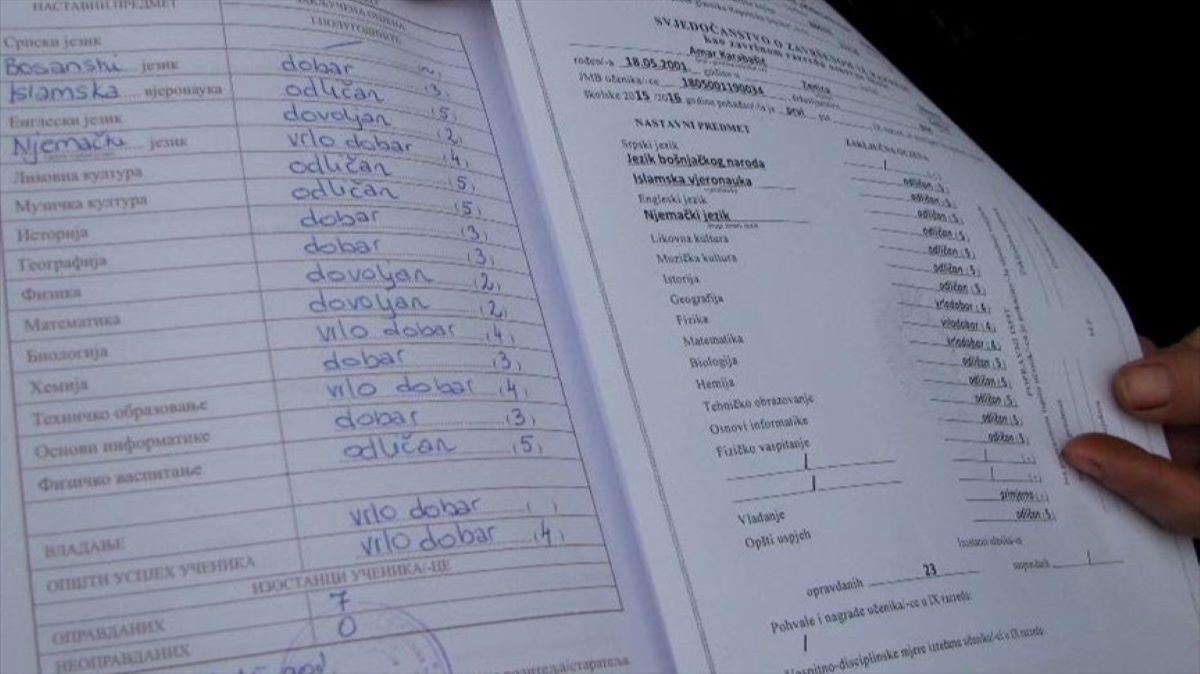 НАСТАВНИ ПРЕДМЕТ
ЗАКЉУЧЕНА ОЦЈЕНА
Српски језик
Bosanski језик dobar
Islamska вјеронаука odličan (3)
Енглески језик dovoljan (5)
Njemački језик vrlo dobar (2)
Ликовна култура odličan (4)
Музичка култура odličan (5)
Историја dobar (5)
Географија dobar (3)
Физика dovoljan (3)
Математика dovoljan (2)
Биологија vrlo dobar (2)
Хемија dobar (4)
Техничко образовање vrlo dobar (3)
Основи информатике dobar (4)
Физичко васпитање odličan (3)
(5)
ВЛАДАЊЕ vrlo dobar ( )
ОПШТИ УСПЈЕХ УЧЕНИКА vrlo dobar (4)
ИЗОСТАНЦИ УЧЕНИКА/-ЦЕ
ОПРАВДАНИХ 7
НЕОПРАВДАНИХ 0
SVJEDOČANSTVO O ZAVRŠENOM
kao završnom razredu
Amar Karabašić
rođen/-a 18.05.2001 godine u Zenica
JMB učenika/-ce 1805001190034
školske 2015 /2016 godine pohađao/-la je prvi put
NASTAVNI PREDMET ZAKLJUČNA OCJENA
Srpski jezik /
Jezik bošnjačkog naroda odličan (5)
Islamska vjeronauka odličan (5)
Engleski jezik odličan (5)
Njemački jezik odličan (5)
Likovna kultura odličan (5)
Muzička kultura odličan (5)
Istorija vrlodobar (4)
Geografija vrlodobar (4)
Fizika vrlodobar (4)
Matematika odličan (5)
Biologija odličan (5)
Hemija odličan (5)
Tehničko obrazovanje odličan (5)
Osnovi informatike odličan (5)
Fizičko vaspitanje
/ /
/ /
Vladanje primjerno (-)
Opšti uspjeh odličan (5)
Izostanci učenika/-ce
opravdanih 23 neopravdanih /
Pohvale i nagrade učenika/-ce u IX razredu:
/
Vaspitno-disciplinske mjere izrečene učeniku/-ci u IX razredu:
POPRAVNI ISPIT
М.Р.